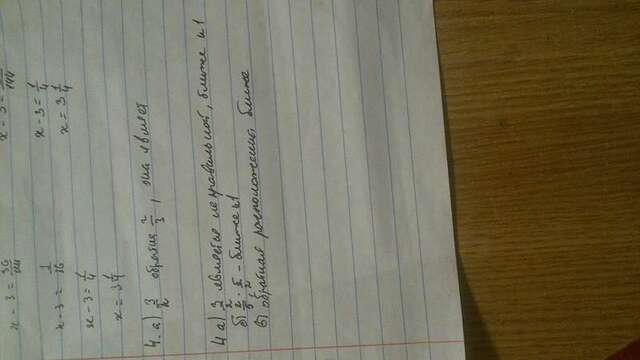 x - 3 = 36/144
x - 3 = 1/36
x - 3 = 1/4
x = 3 1/4
x - 3 = /144
x - 3 = 1/4
x = 3 1/4
4. а) 3/2 обратна 2/3, она являет
4 а) 3/2 является неправильной, ближе к 1
б) 2/5 · 5/2 - ближе к 1
в) обратная расположения ближе